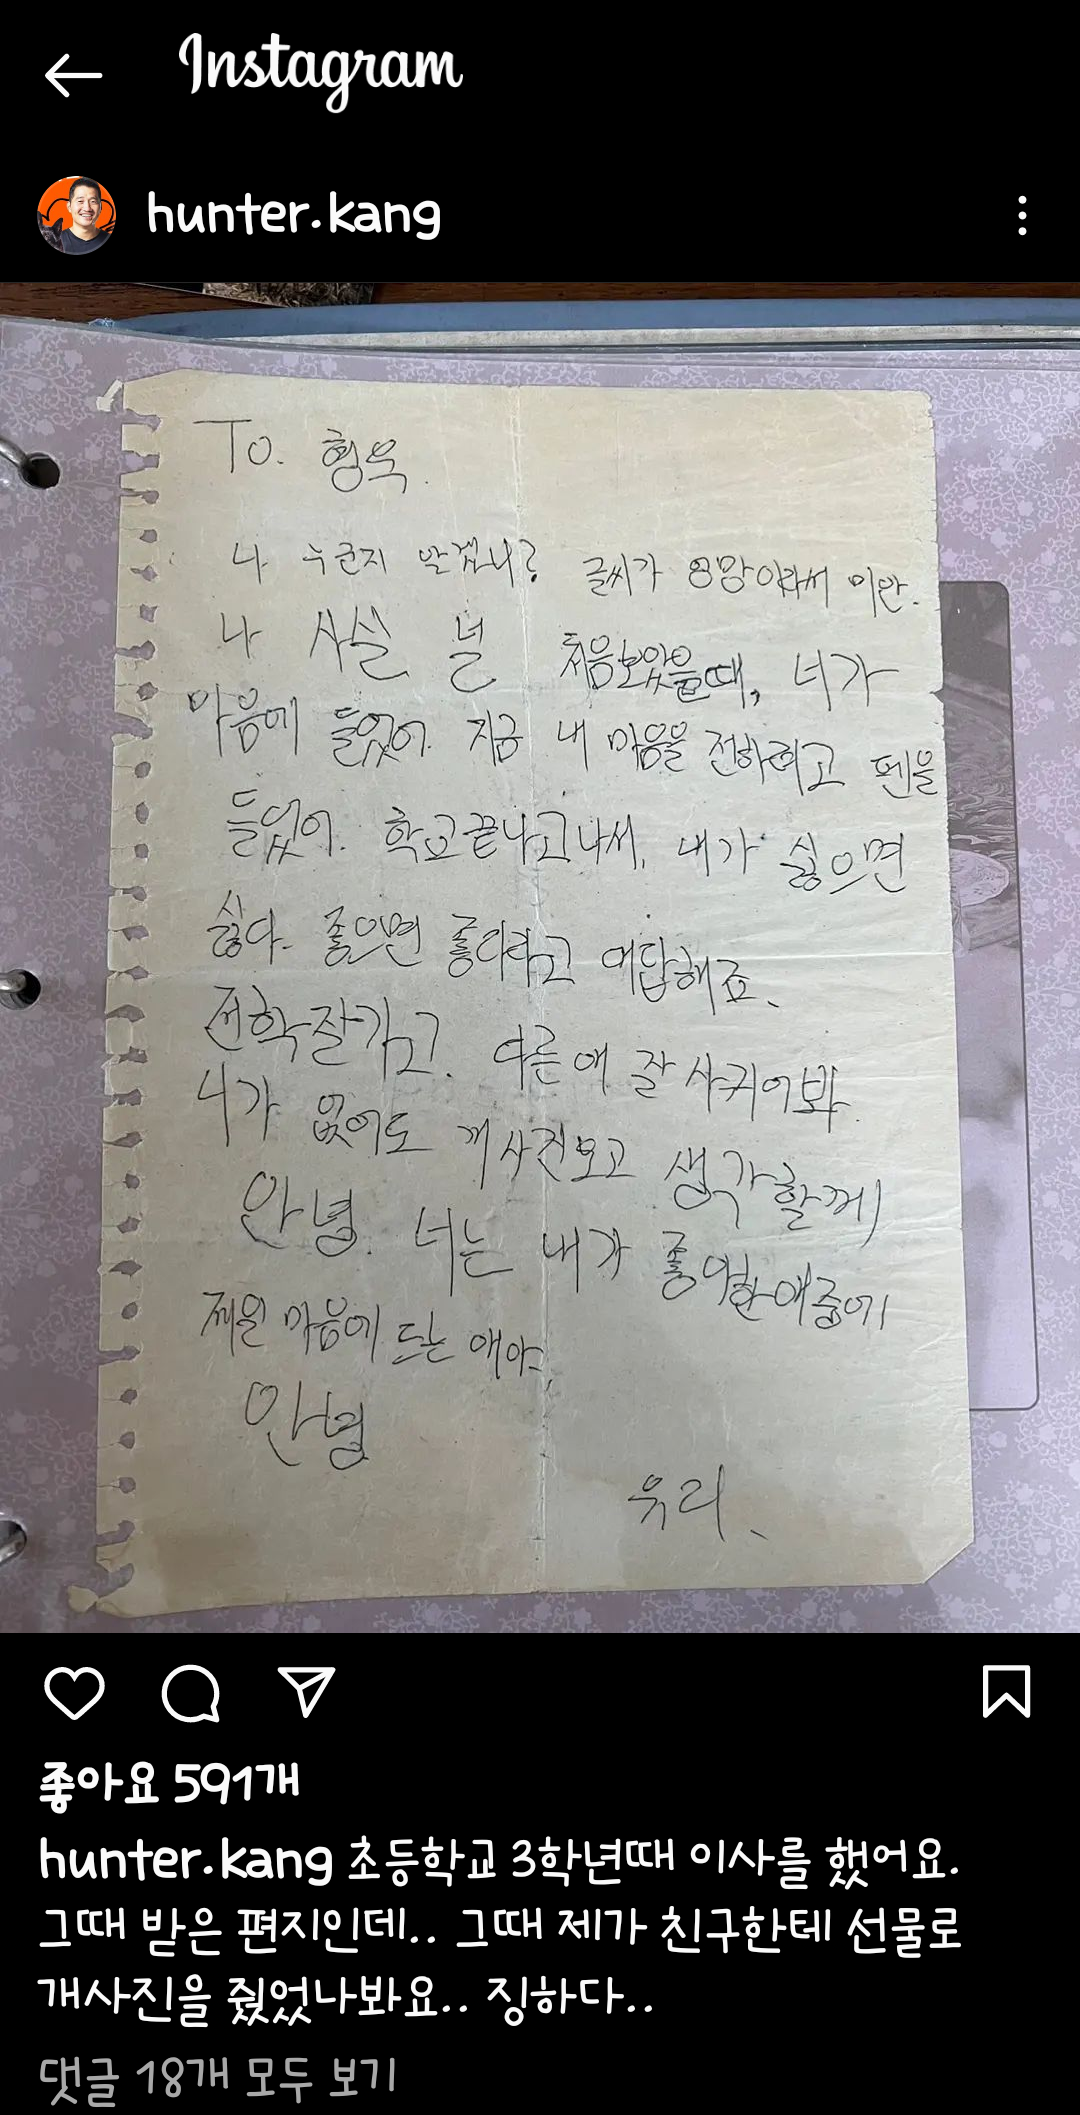 Instagram
hunter.kang
To. 형욱.
나 누군지 알겠니? 글씨가 엉망이라서 미안.
나 사실 널 처음보았을때, 너가
마음에 들었어. 지금 내 마음을 전하려고 펜을
들었어. 학교끝나고나서, 내가 싫으면
싫다. 좋으면 좋다라고 대답해죠.
전학잘가고. 다른애 잘사귀어봐.
니가 없어도 개사진보고 생각할께
안녕. 너는 내가 좋아한애중에
제일 마음에 드는 애야.
안녕
유리.
좋아요 591개
hunter.kang 초등학교 3학년때 이사를 했어요.
그때 받은 편지인데.. 그때 제가 친구한테 선물로
개사진을 줬었나봐요.. 징하다..
댓글 18개 모두 보기